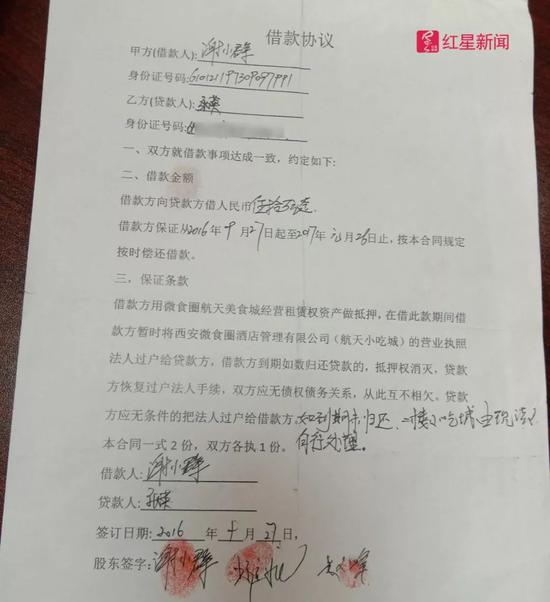 红星新闻
借款协议
甲方(借款人): 谢小群
身份证号码:
乙方(贷款人):
身份证号码:
一、双方就借款事项达成一致，约定如下:
二、借款金额
借款方向贷款方借人民币伍拾万元.
借款方保证从2016年 月27日起至2017年 月26日止，按本合同规定
按时偿还借款。
三，保证条款
借款方用微食圈航天美食城经营租赁权资产做抵押，在借此款期间借
款方暂时将西安微食圈酒店管理有限公司（航天小吃城）的营业执照
法人过户给贷款方，借款方到期如数归还贷款的，抵押权消灭，贷款
方恢复过户法人手续，双方应无债权债务关系，从此互不相欠。贷款
方应无条件的把法人过户给借款方。如到期未归还、二楼小吃城由现法人
自行处理。
本合同一式2份，双方各执1份。
借款人: 谢小群
贷款人:
签订日期: 2016 年 月 27 日，
股东签字: 谢小群